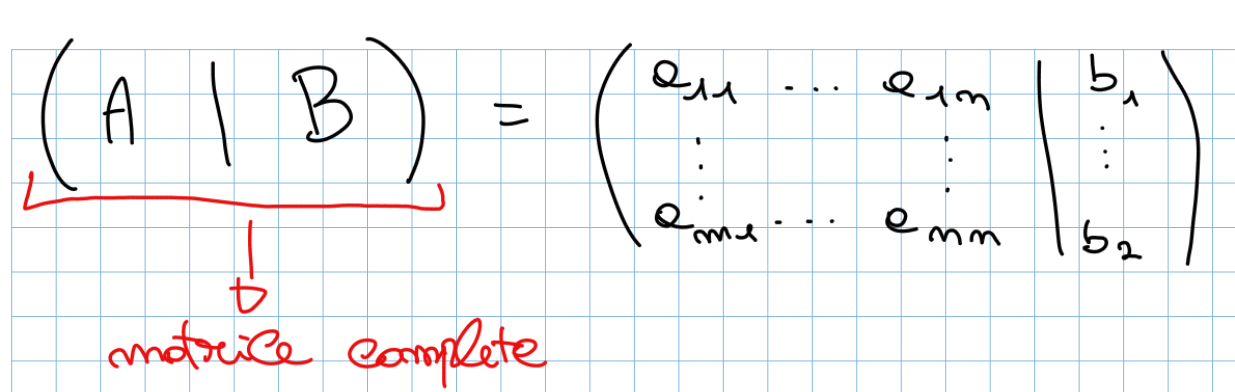 ( A | B ) = ( a11 ... a1n | b1
⋮ ⋮ ⋮
am1 ... amn | b2 )
matrice completa